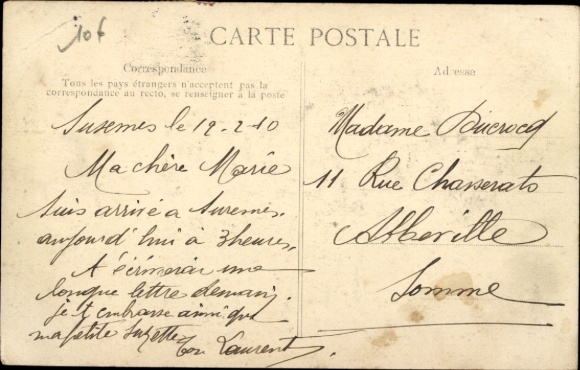 10f
CARTE POSTALE
Correspondance
Tous les pays étrangers n'acceptent pas la
correspondance au recto, se renseigner à la poste
Adresse
Suresnes le 19-2-10
Ma chère Marie
suis arrivé a Suresnes.
aujourd'hui à 3 heures,
t'écrirerai une
longue lettre demain.
je t'embrasse ainsi que
ma petite Suzette
Ton Laurent
Madame Ducrocq
11 Rue Chasserats
Abbeville
Somme